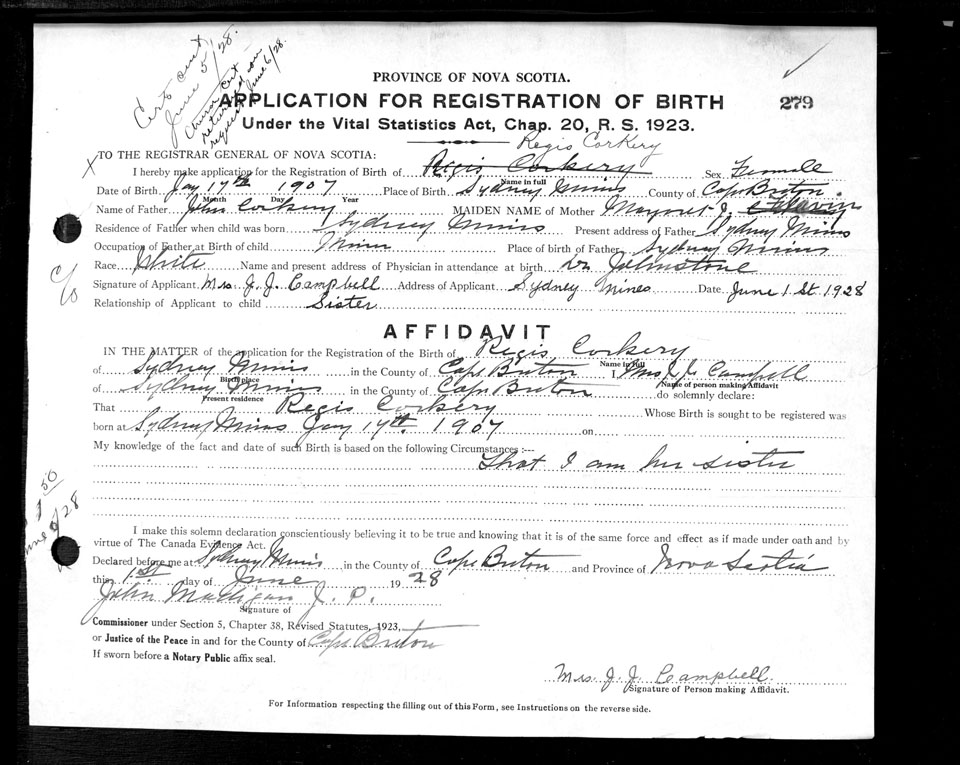 Cert out
June 5/28.
Church Cert
returned on
request June 6/28.
PROVINCE OF NOVA SCOTIA.
APPLICATION FOR REGISTRATION OF BIRTH
279
Under the Vital Statistics Act, Chap. 20, R. S. 1923.
Regis Corkery
X TO THE REGISTRAR GENERAL OF NOVA SCOTIA:
I hereby make application for the Registration of Birth of Regis Corkery Sex Female
Name in full
Date of Birth Jay 17th 1907 Place of Birth Sydney Mines County of Cape Breton
Month Day Year
Name of Father John Corkery MAIDEN NAME of Mother Margaret J.
Residence of Father when child was born Sydney Mines Present address of Father Sydney Mines
Occupation of Father at Birth of child Miner Place of birth of Father Sydney Mines
Race White Name and present address of Physician in attendance at birth Dr Johnstone
Signature of Applicant Mrs J. J. Campbell Address of Applicant Sydney Mines Date June 1 St. 1928
Relationship of Applicant to child Sister
c/o
AFFIDAVIT
IN THE MATTER of the application for the Registration of the Birth of Regis Corkery
Name in full
of Sydney Mines in the County of Cape Breton I Mrs J. J. Campbell
Birth place Name of person making Affidavit
of Sydney Mines in the County of Cape Breton do solemnly declare:
Present residence
That Regis Corkery Whose Birth is sought to be registered was
born at Sydney Mines Jay 17th 1907 on
My knowledge of the fact and date of such Birth is based on the following Circumstances :---
That I am her sister
50
/28
I make this solemn declaration conscientiously believing it to be true and knowing that it is of the same force and effect as if made under oath and by
virtue of The Canada Evidence Act.
Declared before me at Sydney Mines in the County of Cape Breton and Province of Nova Scotia
this 1st day of June 1928
John Madigan J. P.
Signature of
Commissioner under Section 5, Chapter 38, Revised Statutes, 1923,
or Justice of the Peace in and for the County of Cape Breton
If sworn before a Notary Public affix seal.
Mrs. J. J. Campbell.
Signature of Person making Affidavit.
For Information respecting the filling out of this Form, see Instructions on the reverse side.